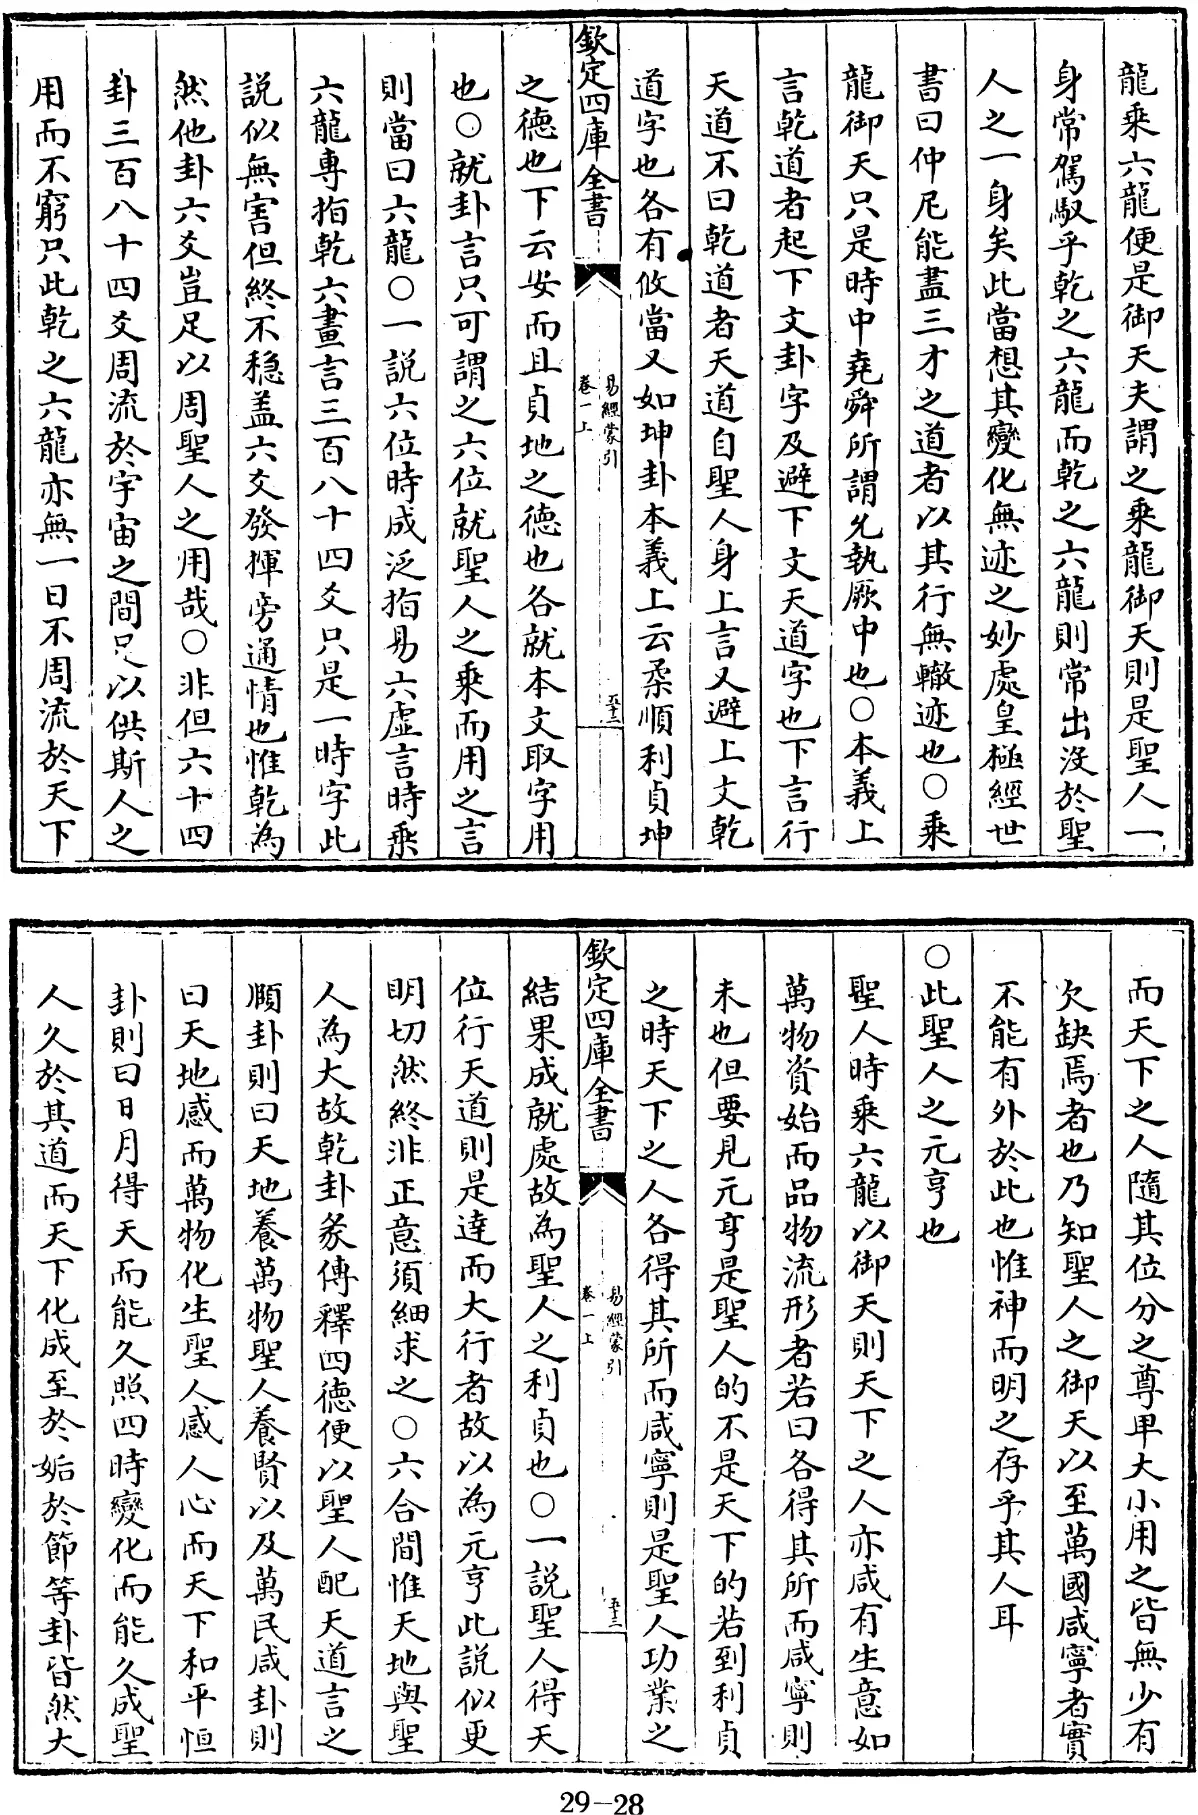 龍乘六龍便是御天夫謂之乘龍御天則是聖人一
身常駕馭乎乾之六龍而乾之六龍則常出沒於聖
人之一身矣此當想其變化無迹之妙處皇極經世
書曰仲尼能盡三才之道者以其行無轍迹也○乘
龍御天只是時中堯舜所謂允執厥中也○本義上
言乾道者起下文卦字及避下文天道字也下言行
天道不曰乾道者天道自聖人身上言又避上文乾
道字也各有攸當又如坤卦本義上云柔順利貞坤
欽定四庫全書
易經蒙引
卷一上
五十二
之德也下云安而且貞地之德也各就本文取字用
也○就卦言只可謂之六位就聖人之乘而用之言
則當曰六龍○一説六位時成泛指易六虛言時乘
六龍專指乾六畫言三百八十四爻只是一時字此
説似無害但終不穏盖六爻發揮旁通情也惟乾為
然他卦六爻豈足以周聖人之用哉○非但六十四
卦三百八十四爻周流於宇宙之間足以供斯人之
用而不窮只此乾之六龍亦無一日不周流於天下
而天下之人隨其位分之尊卑大小用之皆無少有
欠缺焉者也乃知聖人之御天以至萬國咸寧者實
不能有外於此也惟神而明之存乎其人耳
○此聖人之元亨也
聖人時乘六龍以御天則天下之人亦咸有生意如
萬物資始而品物流形者若曰各得其所而咸寧則
未也但要見元亨是聖人的不是天下的若到利貞
之時天下之人各得其所而咸寧則是聖人功業之
欽定四庫全書
易經蒙引
卷一上
五十三
結果成就處故為聖人之利貞也○一説聖人得天
位行天道則是達而大行者故以為元亨此説似更
明切然終非正意須細求之○六合間惟天地與聖
人為大故乾卦彖傳釋四德便以聖人配天道言之
頤卦則曰天地養萬物聖人養賢以及萬民咸卦則
曰天地感而萬物化生聖人感人心而天下和平恒
卦則曰日月得天而能久照四時變化而能久成聖
人久於其道而天下化成至於姤於節等卦皆然大
29-28